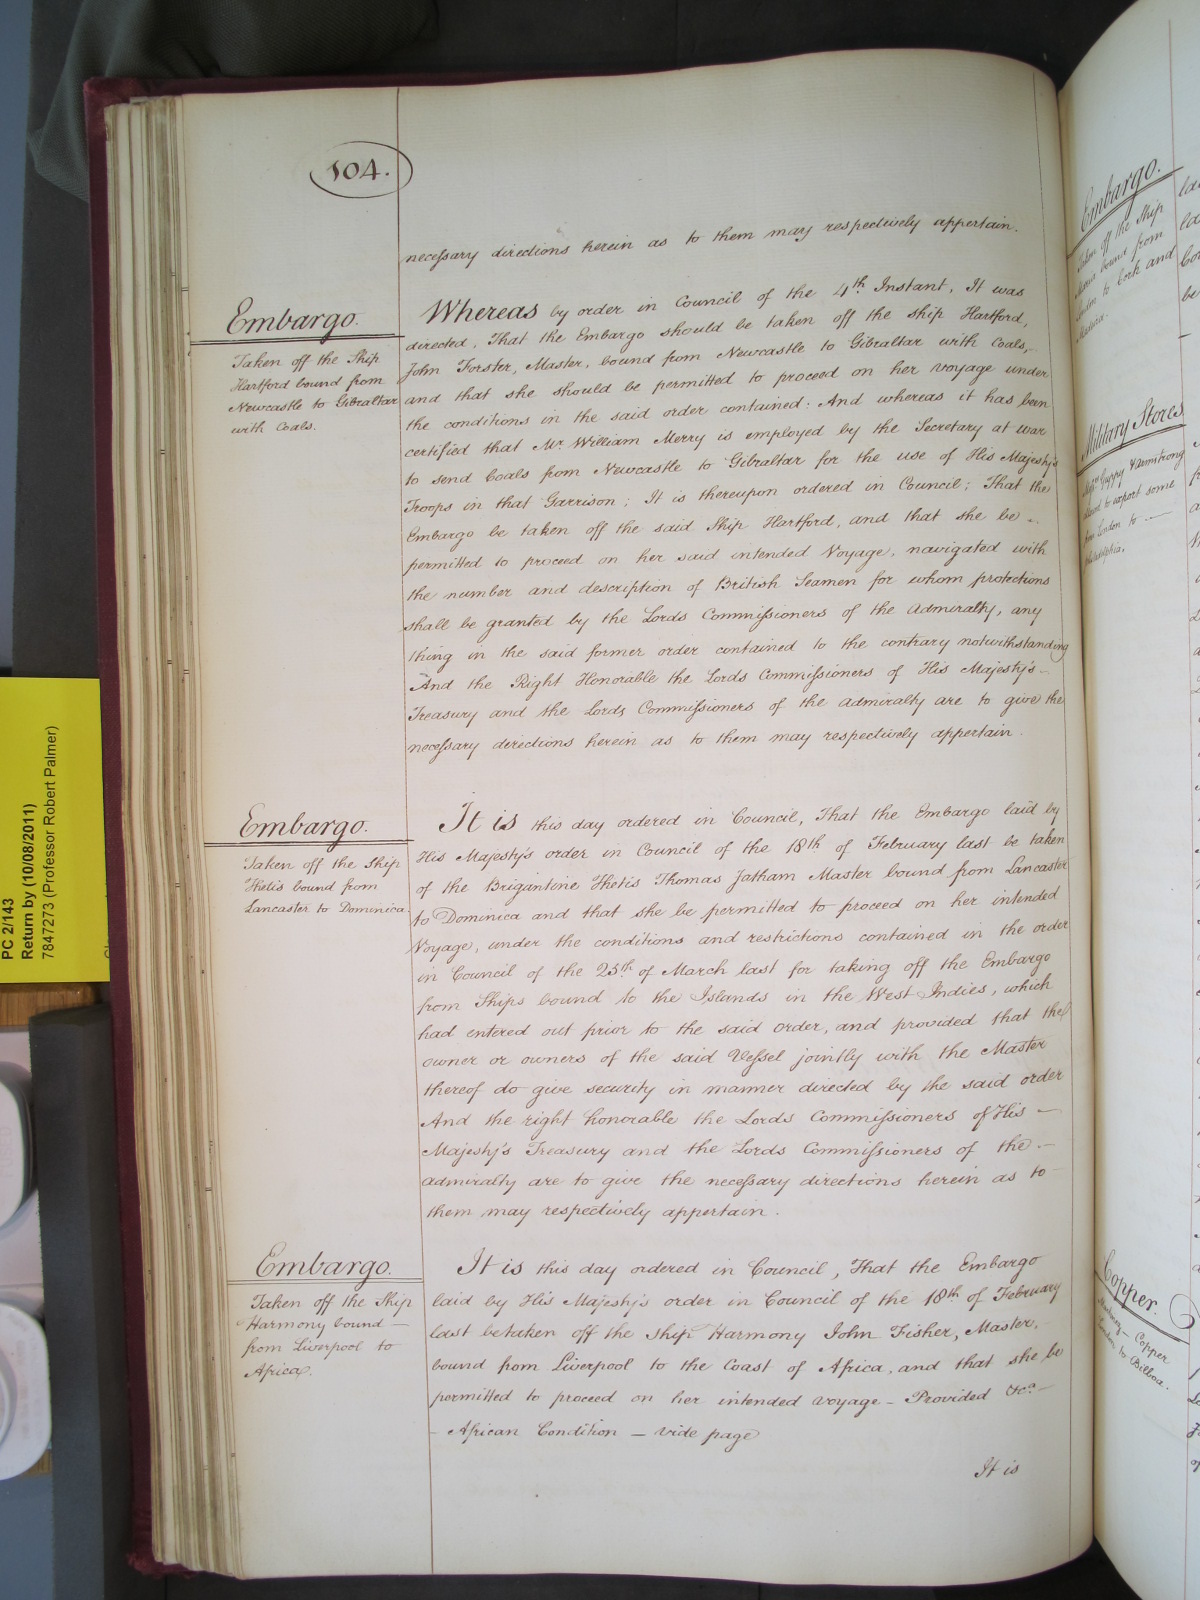 104.
necessary directions herein as to them may respectively appertain.
Embargo.
Taken off the Ship
Hartford bound from
Newcastle to Gibraltar
with Coals.
Whereas by order in Council of the 4th Instant, It was
directed, That the Embargo should be taken off the ship Hartford,
John Forster, Master, bound from Newcastle to Gibraltar with Coals,
and that she should be permitted to proceed on her voyage under
the conditions in the said order contained: And whereas it has been
certified that Mr. William Merry is employed by the Secretary at war
to send Coals from Newcastle to Gibraltar for the use of His Majesty's
Troops in that Garrison; It is thereupon ordered in Council; That the
Embargo be taken off the said Ship Hartford, and that she be
permitted to proceed on her said intended Voyage, navigated with
the number and description of British Seamen for whom protections
shall be granted by the Lords Commissioners of the Admiralty, any
thing in the said former order contained to the contrary notwithstanding
And the Right Honorable the Lords Commissioners of His Majesty's
Treasury and the Lords Commissioners of the Admiralty are to give the
necessary directions herein as to them may respectively appertain.
Embargo.
Taken off the Ship
Thetis bound from
Lancaster to Dominica.
It is this day ordered in Council, That the Embargo laid by
His Majesty's order in Council of the 18th of February last be taken
of the Brigantine Thetis Thomas Jatham Master bound from Lancaster
to Dominica and that she be permitted to proceed on her intended
Voyage, under the conditions and restrictions contained in the order
in Council of the 25th of March last for taking off the Embargo
from Ships bound to the Islands in the West Indies, which
had entered out prior to the said order, and provided that the
owner or owners of the said Vessel jointly with the Master
thereof do give security in manner directed by the said order
And the right honorable the Lords Commissioners of His —
Majesty's Treasury and the Lords Commissioners of the —
admiralty are to give the necessary directions herein as to
them may respectively appertain.
Embargo.
Taken off the Ship
Harmony bound —
from Liverpool to
Africa.
It is this day ordered in Council, That the Embargo
laid by His Majesty's order in Council of the 18th of February
last be taken off the ship Harmony John Fisher, Master,
bound from Liverpool to the Coast of Africa, and that she be
permitted to proceed on her intended voyage — Provided &ca —
- African Condition — vide page
It is
PC 2/143
Return by (10/08/2011)
7847273 (Professor Robert Palmer)
Embargo.
Taken off the Ship
bound from
London to Cork and
Military Stores
Guppy & Armstrong
to export some
from London to —
Philadelphia.
Copper.
Copper
London to Bilboa.